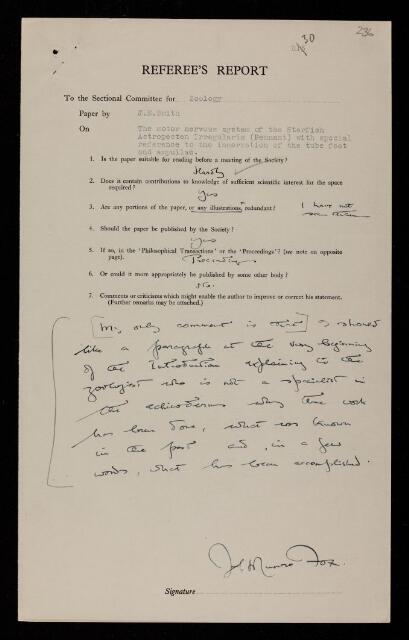 236
30
REFEREE'S REPORT
To the Sectional Committee for Zoology
Paper by J.E.Smith
On The motor nervous system of the Starfish
Astropecten Irregularis (Pennant) with special
reference to the innervation of the tube feet
and ampullae.
1. Is the paper suitable for reading before a meeting of the Society?
Hardly
2. Does it contain contributions to knowledge of sufficient scientific interest for the space
required?
Yes
3. Are any portions of the paper, or any illustrations, redundant? I have not
seen them
4. Should the paper be published by the Society?
Yes
5. If so, in the 'Philosophical Transactions' or the 'Proceedings'? (see note on opposite
page).
Proceedings
6. Or could it more appropriately be published by some other body?
No.
7. Comments or criticisms which might enable the author to improve or correct his statement.
(Further remarks may be attached.)
[My only comment is that] I should
like a paragraph at the very beginning
of the Introduction explaining to the
zoologist who is not a specialist in
the echinoderms why this work
has been done, what was known
in the past and, in a few
words, what has been accomplished.
H. Munro Fox.
Signature